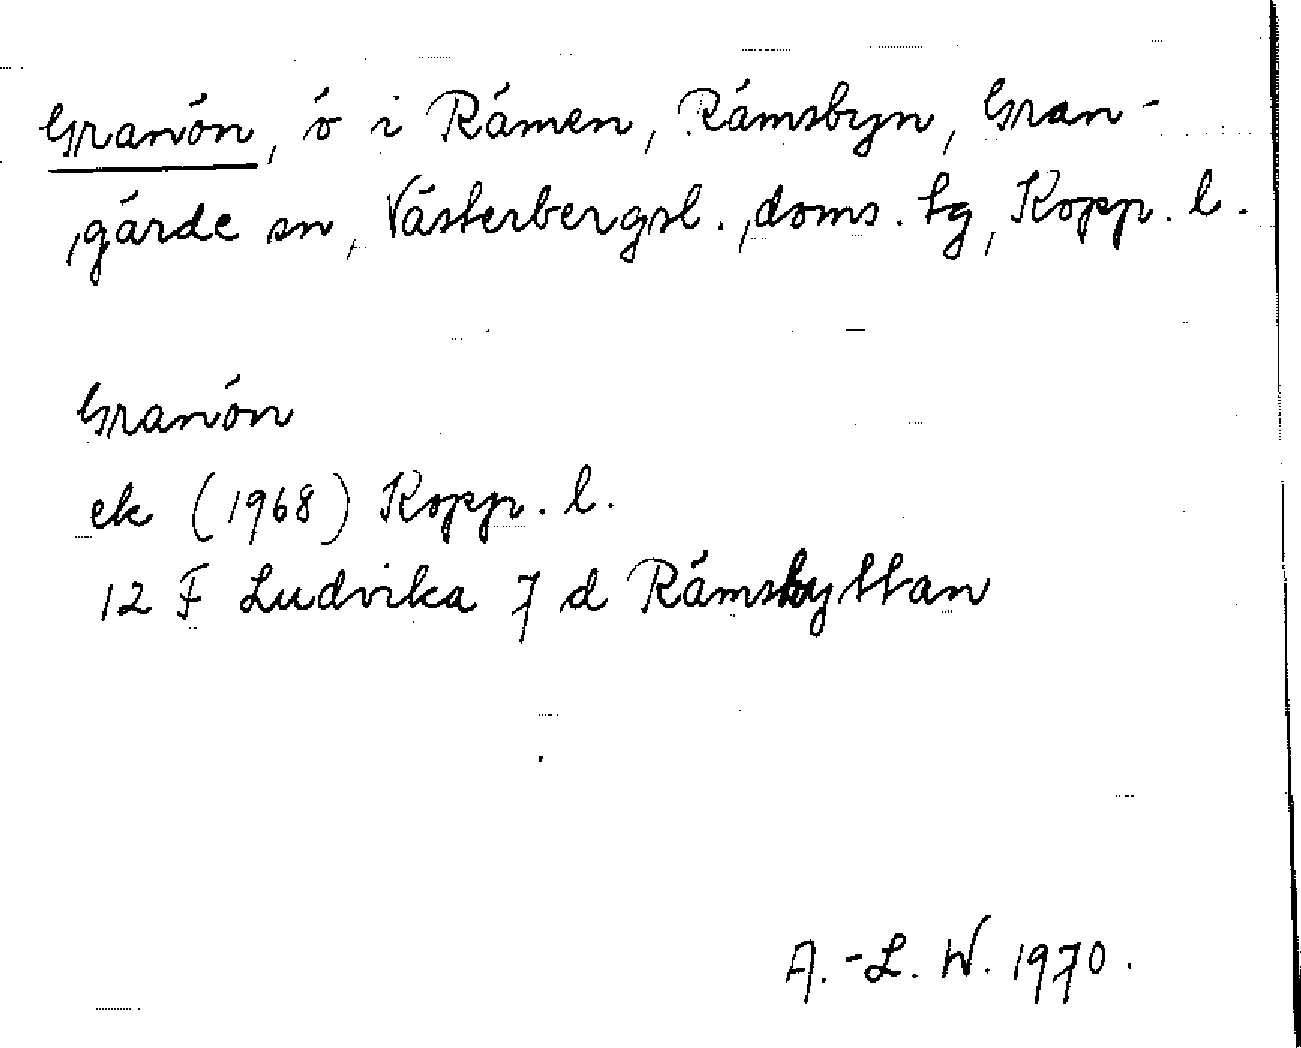 Granön, ö i Rämen, Rämsbyn, Gran-
gärde sn, Västerbergsl., doms. tg, Kopp. l.
Granön
ek (1968) Kopp. l.
12 F Ludvika 7 d Rämshyttan
A.-L. W. 1970.